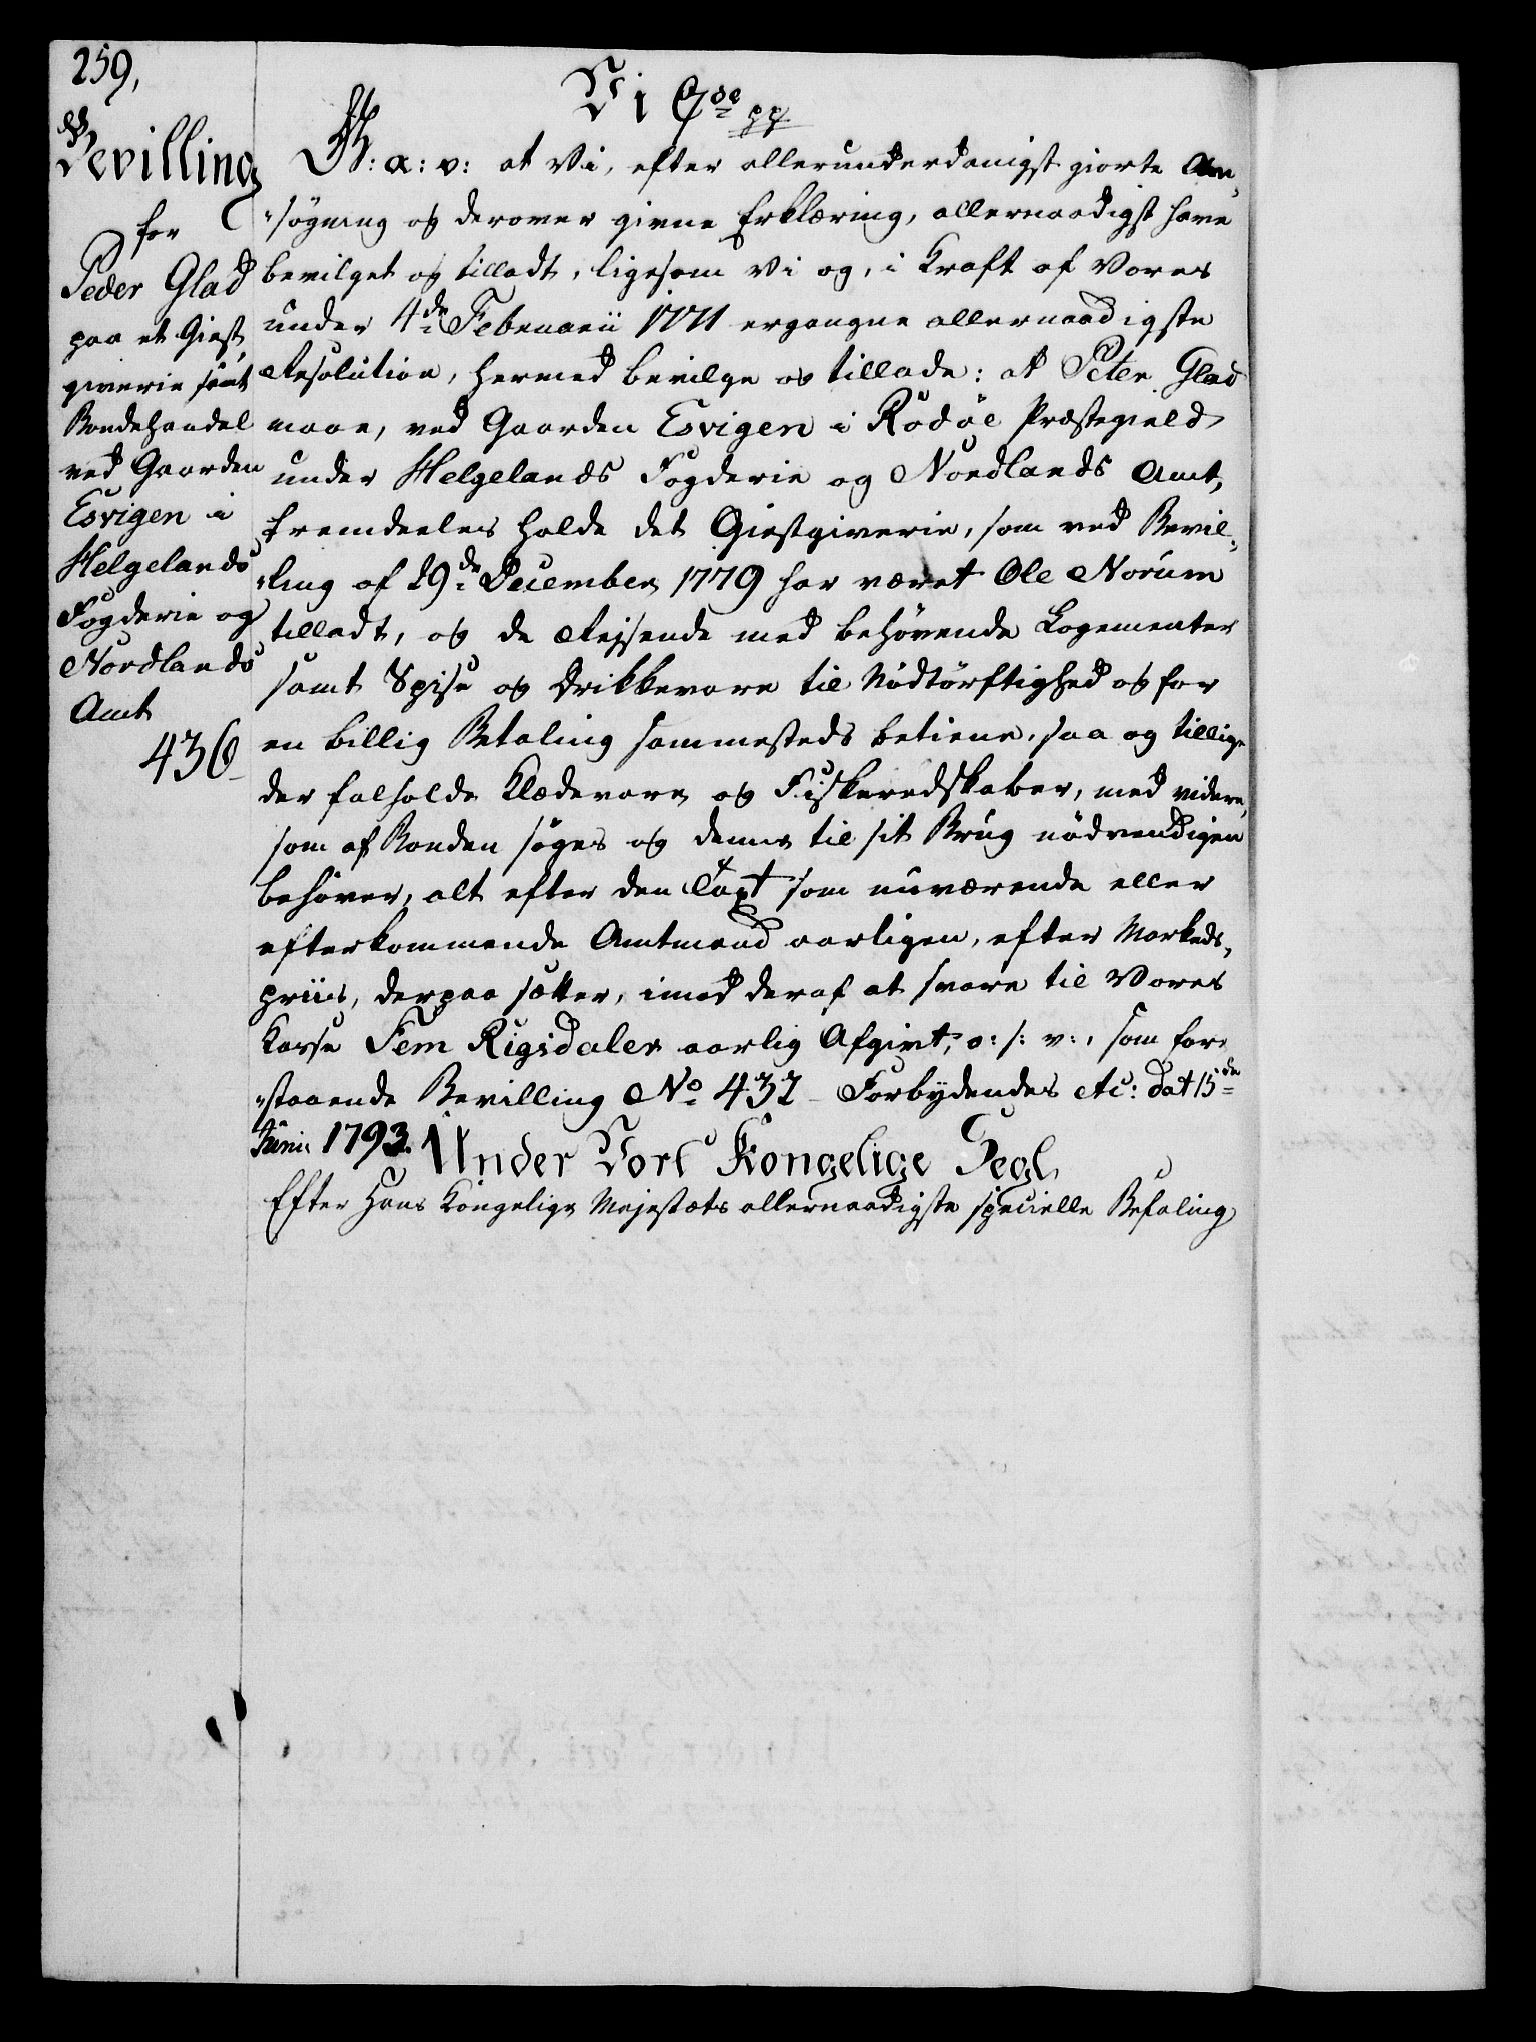 259,
Bevilling
for
Peder Glad
paa et Giest,
giverie samt
Bondehandel
ved Gaarden
Esvigen i
Helgelands
Fogderie og
Nordlands
Amt
436
Vi C 7de pp
G: a: v: at Vi, efter allerunderdanigst giorte An„
„søgning og derover givne Erklæring, allernaadigst have
bevilget og tilladt, ligesom Vi og, i Kraft af Vores
under 4de Februarii 1771 ergangne allernaadigste
Resolution, hermed bevilge og tillade: at Peter Glad
maae, ved Gaarden Esvigen i Rødøe Præstegield
under Helgelands Fogderie og Nordlands Amt,
fremdeeles holde det Giestgiverie, som ved Bevil„
„ling af 29de December 1779 har været Ole Norum
tilladt, og de Reisende med behøvende Logementer
samt Spise og Drikkevare til Nødtørftighed og for
en billig Betaling sammesteds betiene, saa og tillige
der falholde Klædevare og Fiskeredskaber, med videre,
som af Bonden søges og denne til sit Brug nødvendigen
behøver, alt efter den Taxt som nuværende eller
efterkommende Amtmand aarligen, efter Markeds„
priis, derpaa sætter, imod deraf at svare til Vores
Kasse Fem Rigsdaler aarlig Afgivt, o: s: v:, som for„
„staaende Bevilling No 432 - Forbydendes etc: dat 15de
Junii 1793. Under Vort Kongelige Segl
Efter Hans Kongelige Majestæts allernaadigste specielle Befaling